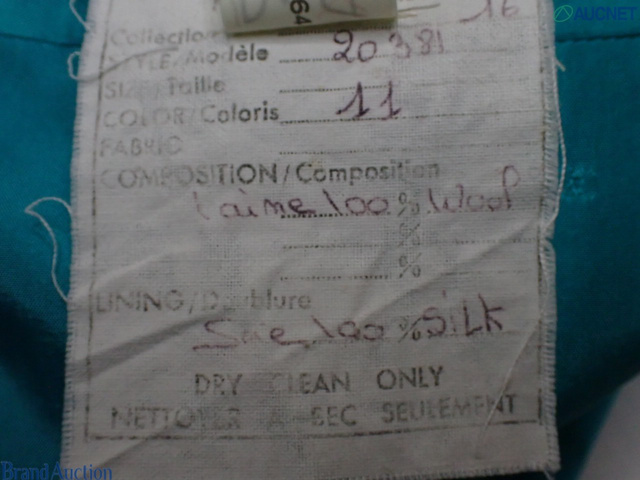 64
16
AUCNET
Collection
STYLE/Modèle 20381
SIZE/Taille
COLOR/Coloris 11
FABRIC
COMPOSITION/Composition
Laine 100 % Wool
%
%
LINING/Doublure
Soie 100 % SILK
DRY CLEAN ONLY
NETTOYER A SEC SEULEMENT
Brand Auction